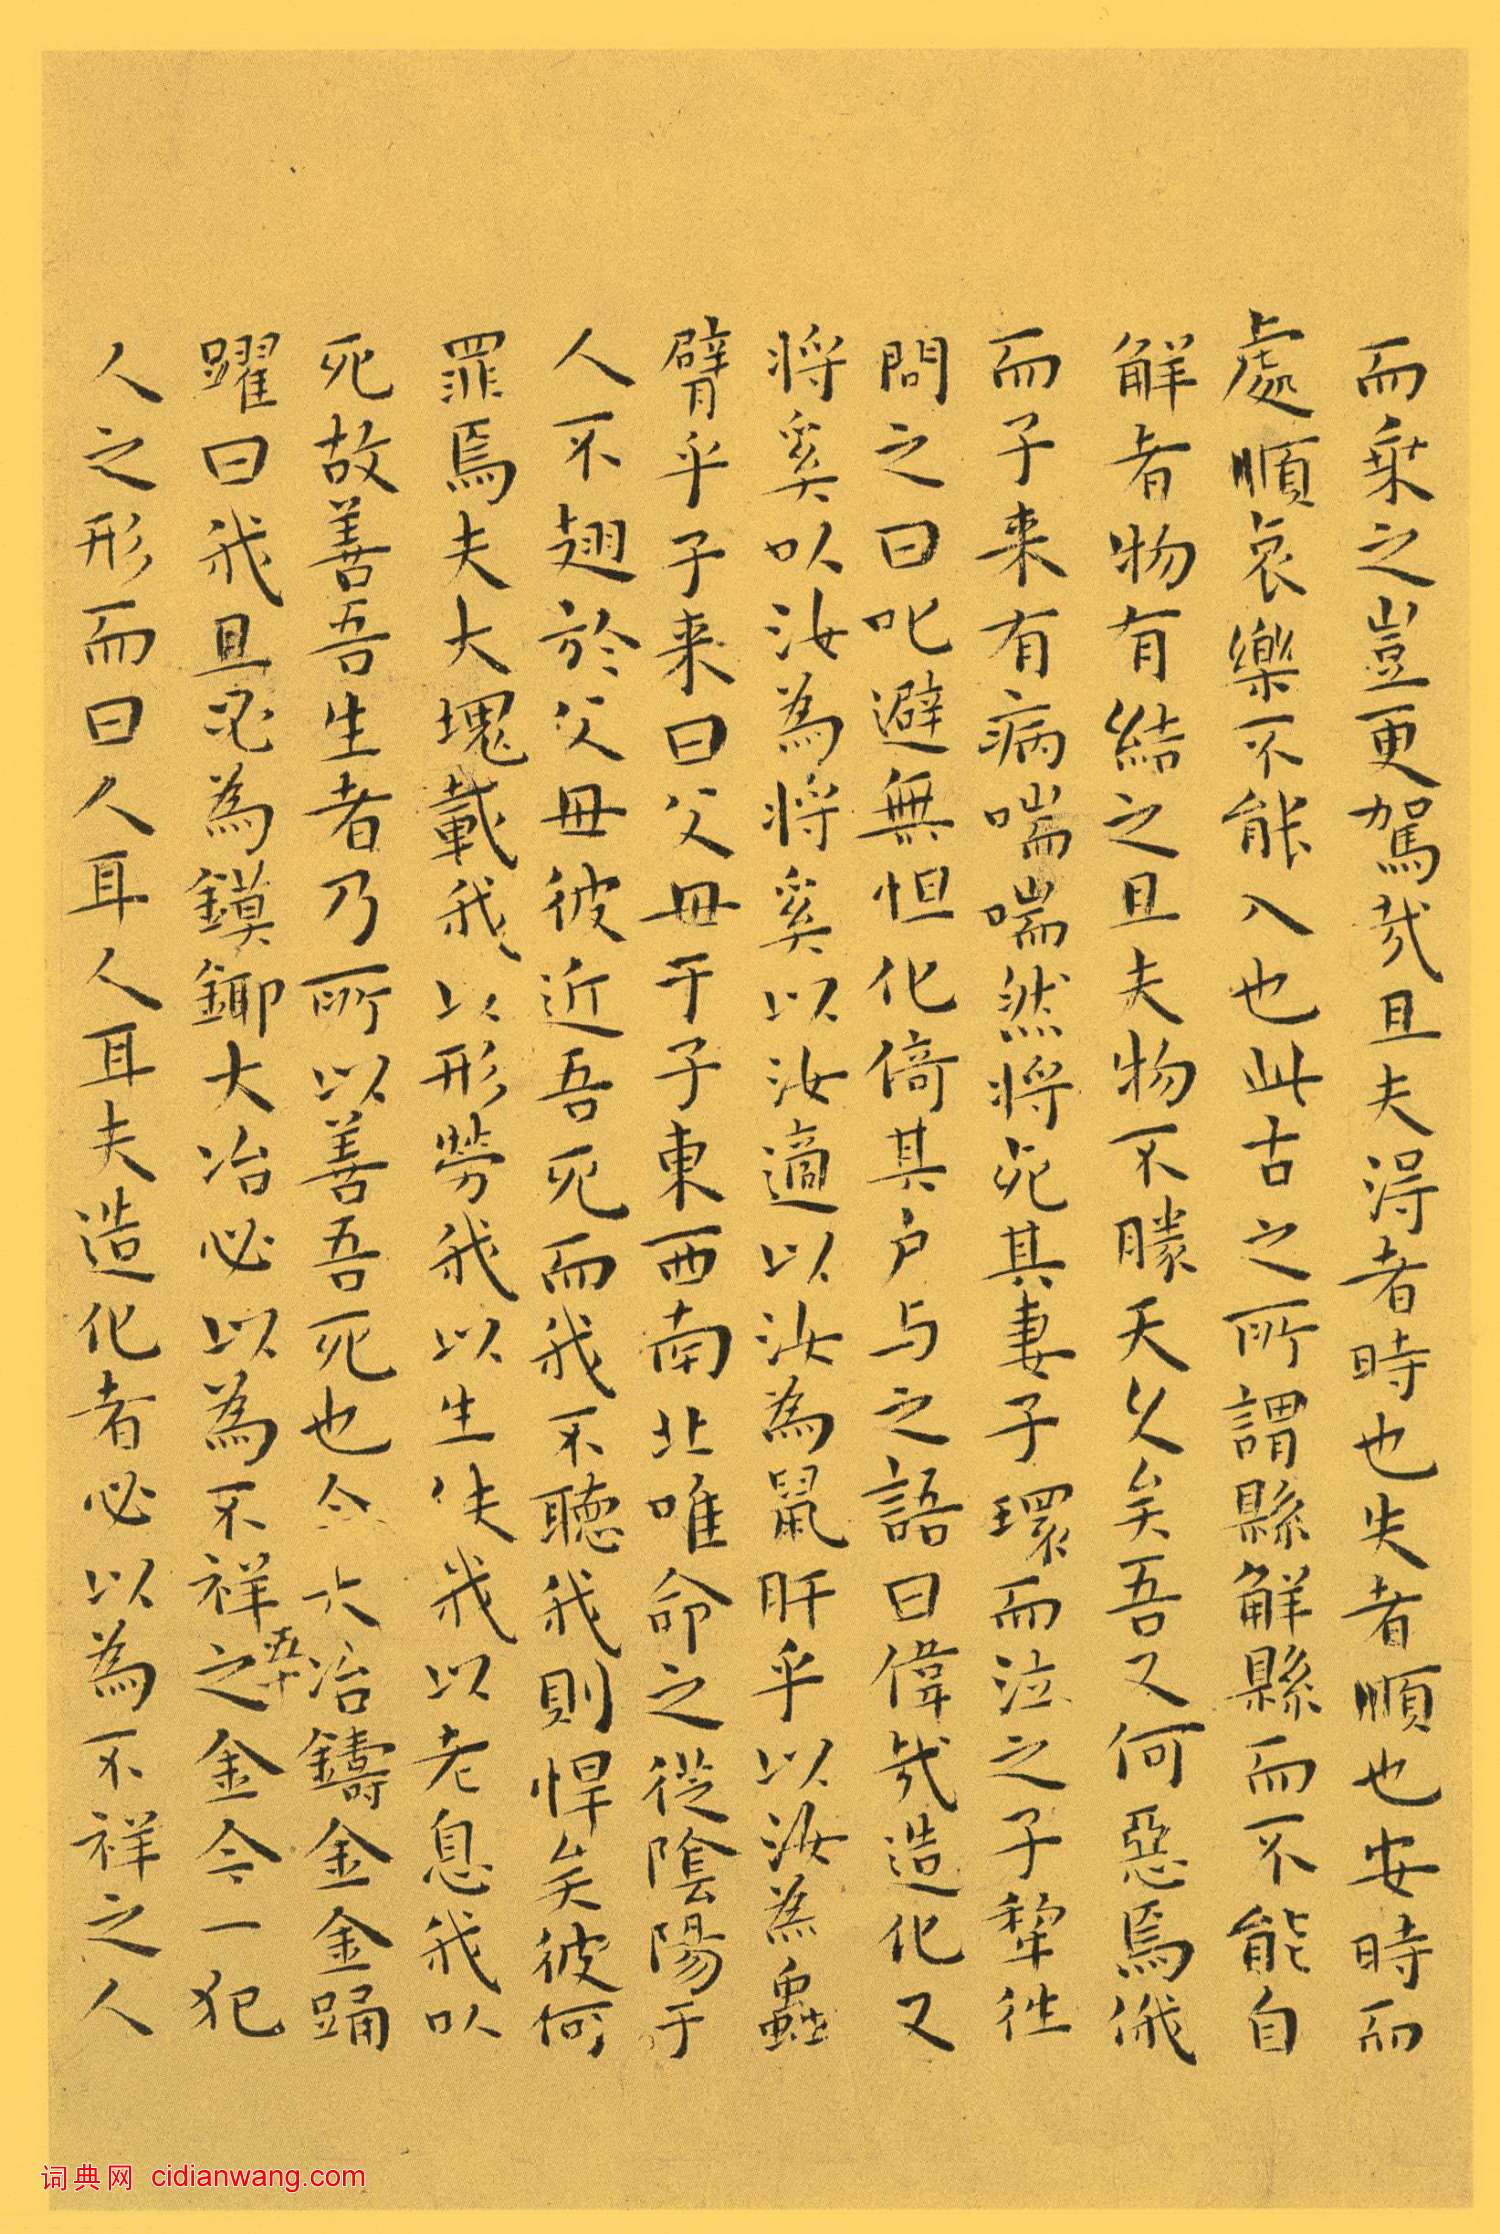 而乗之豈更駕哉且夫淂者時也失者順也安時而
處順哀樂不能入也此古之所謂縣觧縣而不能自
觧者物有結之且夫物不勝天久矣吾又何惡焉俄
而子来有病喘喘然將死其妻子環而泣之子犂徃
問之曰叱避無怛化倚其户与之語曰偉哉造化又
將奚以汝為將奚以汝適以汝為鼠肝乎以汝為蟲
臂乎子来曰父母于子東西南北唯命之從陰陽于
人不翅於父母彼近吾死而我不聽我則悍矣彼何
罪焉夫大塊載我以形勞我以生佚我以老息我以
死故善吾生者乃所以善吾死也今大冶鑄金金踊
躍曰我且必為鏌鋣大冶必以為不祥之金今一犯
五十
人之形而曰人耳人耳夫造化者必以為不祥之人
词典网 cidianwang.com